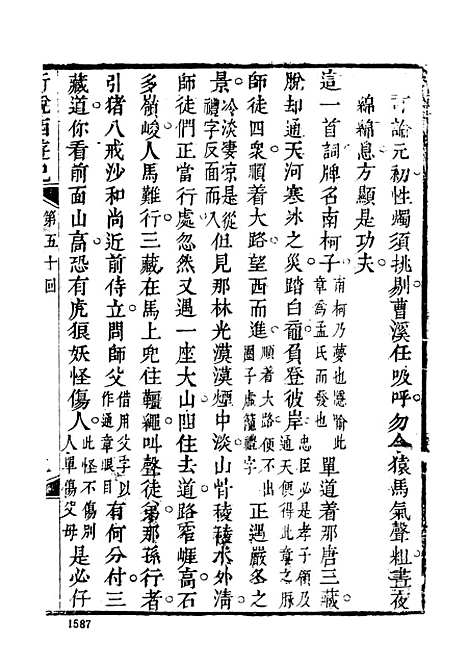 可論元初性燭須挑剔曹溪任吸呼勿令猿馬氣聲粗晝夜
綿綿息方顯是功夫
這一首詞牌名南柯子
南柯乃夢也隱喻此
章爲孟氏而發也
單道着那唐三藏
脫却通天河寒冰之災踏白黿負登彼岸
忠臣必是孝子領及
通天便得此章之脈
師徒四衆順着大路望西而進
順着大路便不出
圈子虛籠禮字
正遇嚴冬之
景
冷淡凄凉是從
禮字反面而入
但見那林光漠漠煙中淡山骨稜稜水外清
師徒們正當行處忽然又遇一座大山阻住去道路窄崖高石
多嶺峻人馬難行三藏在馬上兜住韁繩叫聲徒弟那孫行者
引猪八戒沙和尚近前侍立問師父
借用父字以
作通章眼目
有何分付三
藏道你看前面山高恐有虎狼妖怪傷人
此怪不傷別
人單傷父母
是必仔
新說西遊記
第五十回
1587